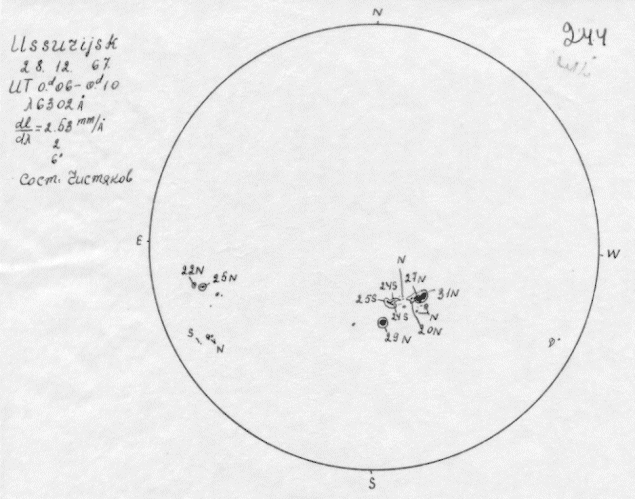 N
244
Ussurijsk
28. 12. 67.
UT 0.d06-0.d10
λ6302Å
dl/dλ=2.53 mm/Å
2
6"
Сост. Чистяков
E
W
22N
26N
N
24S
27N
25S
31N
24S
N
20N
29N
S
N
S